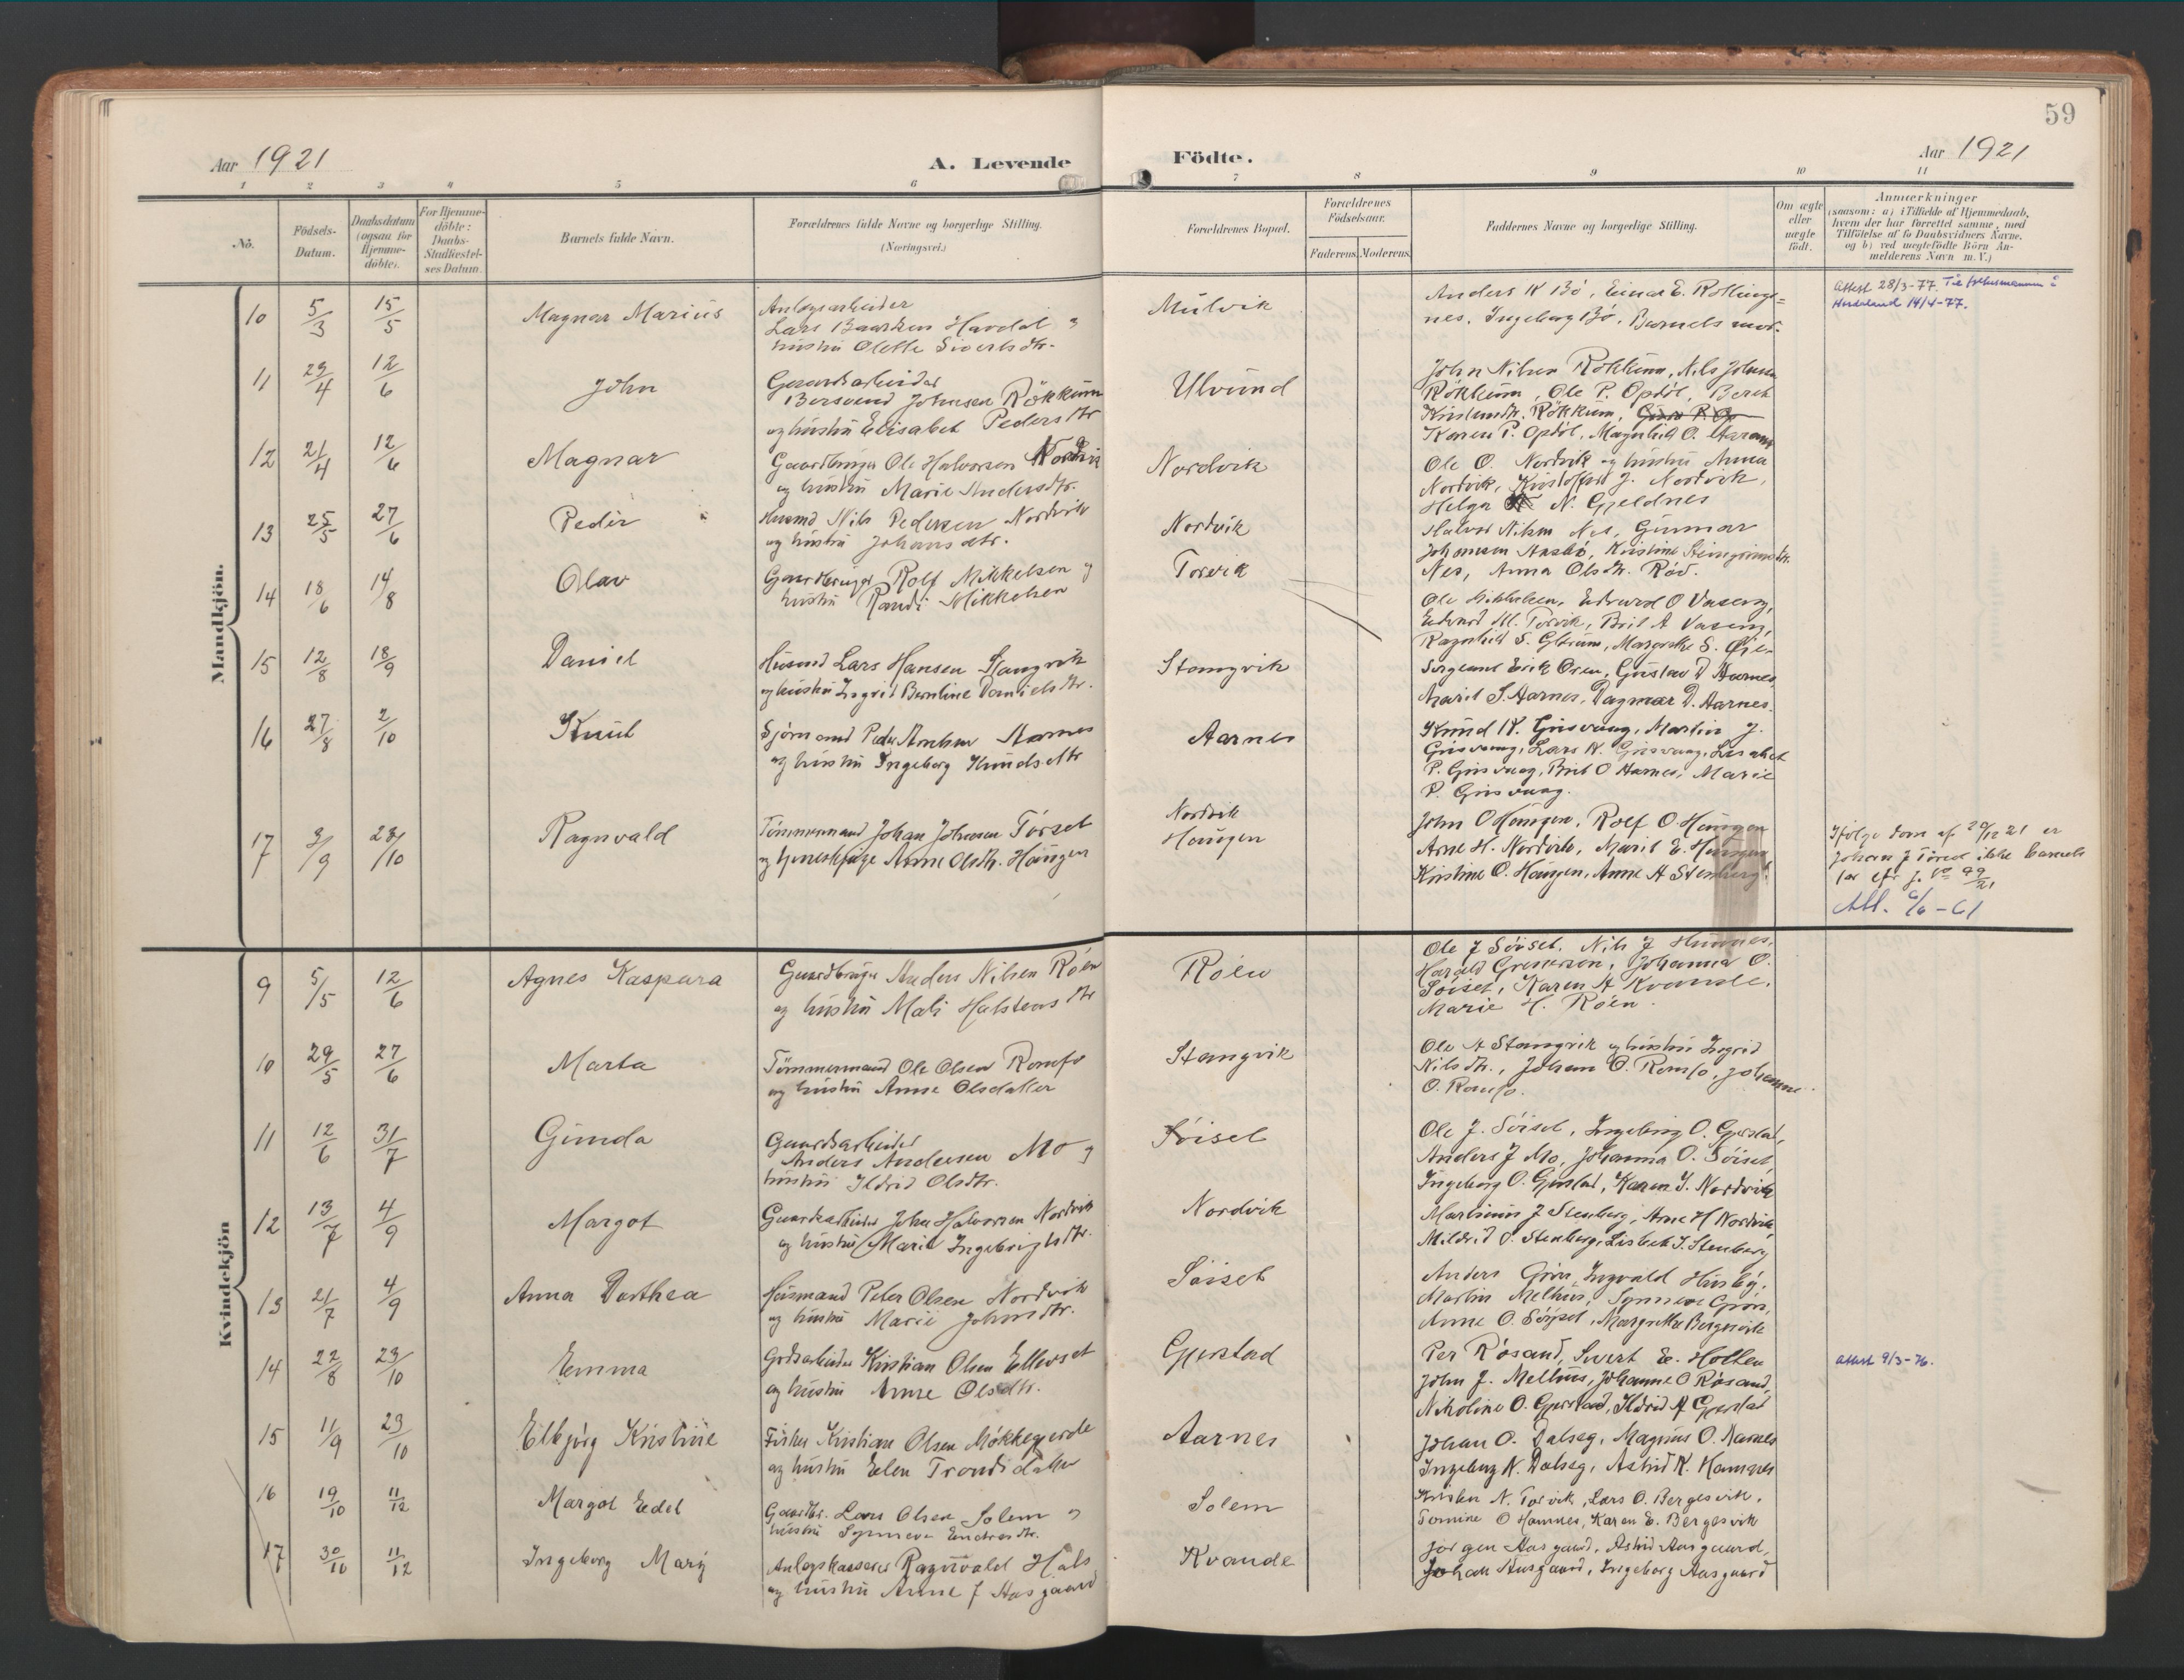 59
Aar 1921
A. Levende
Födte.
Aar 1921
1 2 3 4 5 6 7 8 9 10 11
No.
Födsels-
Datum.
Daabsdatum
(ogsaa for
Hjemme-
döbte).
For Hjemme-
döbte:
Daabs-
Stadfestel-
ses Datum.
Barnets fulde Navn.
Forældrenes fulde Navne og borgerlige Stilling.
(Næringsvei.)
Forældrenes Bopæl.
Forældrenes
Födselsaar.
Faderens. Moderens.
Faddernes Navne og borgerlige Stilling.
Om ægte
eller
uægte
født.
Anmærkninger
(saasom: a) i Tilfælde af Hjemmedaab,
hvem der har forrettet samme, med
Tilföielse af to Daabsvidners Navne,
og b) ved uægtefödte Börn An-
melderens Navn m. V.)
Mandkjön.
10 5/3 15/5 Magnar Marius
Anlægsarbeider
Lars Baardsen Havdal og
hustru Olette Sivertsdtr.
Mulvik
Anders K Bö, Einar E.
nes, Ingeborg Bö, Barnets mor.
Attest 28/3-77.
Hordaland 14/4-77.
11 29/4 12/6 John
Gaardsarbeider
Bersvend Johnsen Rökkum
og hustru Elisabet Pedersdtr
Ulvund
John Nilsen Rökkum, Nils Johnsen
Rökkum, Ole P. Opdöl, Berit
Rökkum,
Karen P. Opdöl, Magnhild O.
12 21/4 12/6 Magnar
Gaardbruger Ole Halvorsen Nordvik
og hustru Marie Andersdtr.
Nordvik
Ole O. Nordvik og hustru Anna
Nordvik, Kristoffer J. Nordvik,
Helga N. Gjeldnes
13 25/5 27/6 Peder
Husmd Nils Pedersen Nordvik
og hustru Johansdtr.
Nordvik
Halvor Nilsen Nes, Gunnar
Johannsen Aasbö, Kristine Steingrimsdtr.
Nes, Anna Olsdtr. Röd.
14 18/6 14/8 Olav
Gaardbruger Rolf Mikkelsen og
hustru Randi Mikkelsen
Torvik
Ole Mikkelsen, Edvard O Vaseng,
Edvard M. Torvik, Brit A Vaseng,
Ragnhild S. Glærum, Margrethe S. Öie.
15 12/8 18/9 Daniel
Husmd Lars Hansen Stangvik
og hustru Ingrid Berntine Danielsdtr.
Stangvik
Sergeant Erik Oren, Gustav D Aarnes,
Marit S. Aarnes, Dagmar D. Aarnes.
16 27/8 2/10 Knut
Sjömand Peder Aarnes
og hustru Ingeborg Knudsdtr
Aarnes
Knud K. Grisvaag, Martin J.
Grisvaag, Lars K. Grisvaag, Lisabet
P. Grisvaag, Brit O Aarnes, Marie
P. Grisvaag.
17 3/9 23/10 Ragnvald
Tömmermand Johan Johnsen Törset
og Anne Olsdtr. Haugen
Nordvik
Haugen
John O Haugen, Rolf O. Haugen
Arne H. Nordvik, Marit E. Haugen
Kristine O. Haugen, Anne A Stenberg
Ifölge dom af 20/12 21 er
Johan J Törset ikke barnets
far efr j. no 99/21
Att. 6/6-61
Kvindekjön
9 5/5 12/6 Agnes Kaspara
Gaardbruger Anders Nilsen Röen
og hustru Mali Halstensdtr
Röen
Ole J Söiset, Nils J Hamnes,
Harald Gressersen, Johanna O.
Söiset, Karen A Kvande,
Marie H. Röen.
10 29/5 27/6 Marta
Tömmermand Ole Olsen Romfo
og hustru Anne Olsdatter
Stangvik
Ole A Stangvik og hustru Ingrid
Nilsdtr., Johan O. Romfo, Johanne
O. Romfo.
11 12/6 31/7 Gunda
Gaardsarbeider
Anders Andersen Mo og
hustru Ildrid Olsdtr.
Söiset
Ole J. Söiset, Ingeborg O. Gjerstad,
Anders J Mo, Johanna O. Söiset,
Ingeborg O. Gjerstad, Karen J. Nordvik
12 13/7 4/9 Margot
Gaardsarbeider John Halvorsen Nordvik
og hustru Marit Ingebrigtsdtr.
Nordvik
Martinus J Stenberg, Arne H Nordvik,
Mildrid O. Stenberg, Lisbet J. Stenberg
13 21/7 4/9 Anna Dorthea
Husmand Peter Olsen Nordvik
og hustru Marie Johnsdtr.
Söiset
Anders Grön, Ingvald Husby,
Martin Melhus, Synneve Grön,
Anne O. Söiset, Margrethe Bergesvik
14 22/8 23/10 Emma
Grdsarbeider Kristian Olsen Ellevset
og hustru Anne Olsdtr.
Gjerstad
Per Rösand, Sivert E. Holten
John J. Melhus, Johanne O Rösand,
Nikoline O. Gjerstad, Ildrid A Gjerstad
Attest 9/3-76.
15 11/9 23/10 Elbjörg Kristine
Fisker Kristian Olsen Mökkegerde
og hustru Elen Trondsdatter
Aarnes
Johan O. Dalseg, Magnus O. Aarnes
Ingeborg N. Dalseg, Astrid K. Hamnes
16 19/10 11/12 Margot Edel
Gaardbr. Lars Olsen Solem og
hustru Synneva Endresdtr.
Solem
Kristen N. Torvik, Lars O. Bergesvik,
Tomine O Hamnes, Karen E. Bergesvik
17 30/10 11/12 Ingeborg Marij
Anlægskasserer Ragnvald Hals
og hustru Anne J Aasgaard
Kvande
Jörgen Aasgaard, Astrid Aasgaard,
Johan Aasgaard, Ingeborg Aasgaard